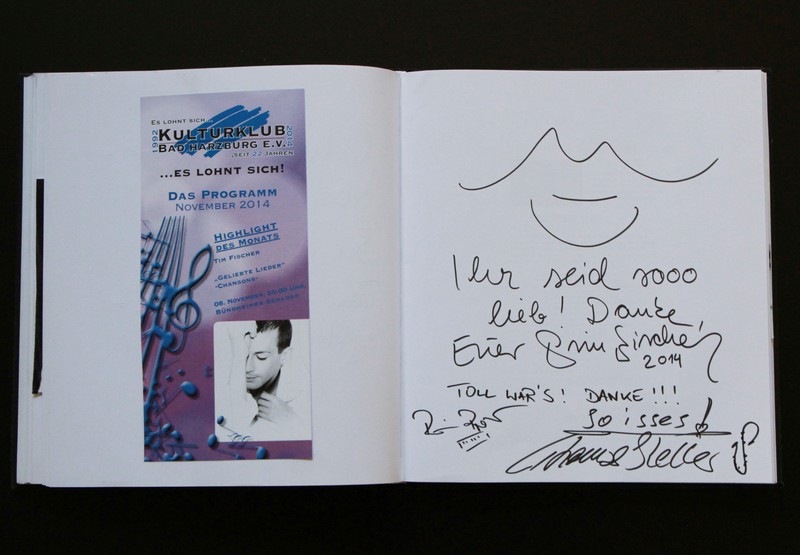 ES LOHNT SICH...
1992
KULTURKLUB
BAD HARZBURG E.V.
2014
...SEIT 22 JAHREN
...ES LOHNT SICH!
DAS PROGRAMM
NOVEMBER 2014
HIGHLIGHT
DES MONATS
TIM FISCHER
„GELIEBTE LIEDER“
-CHANSONG-
08. NOVEMBER, 20:00 UHR
BÜNDHEIMER SCHLOSS
Ihr seid sooo
lieb! Danke,
Euer Tim Fischer
2014
TOLL WAR'S! DANKE!!!
So isses!
Thomas Keller